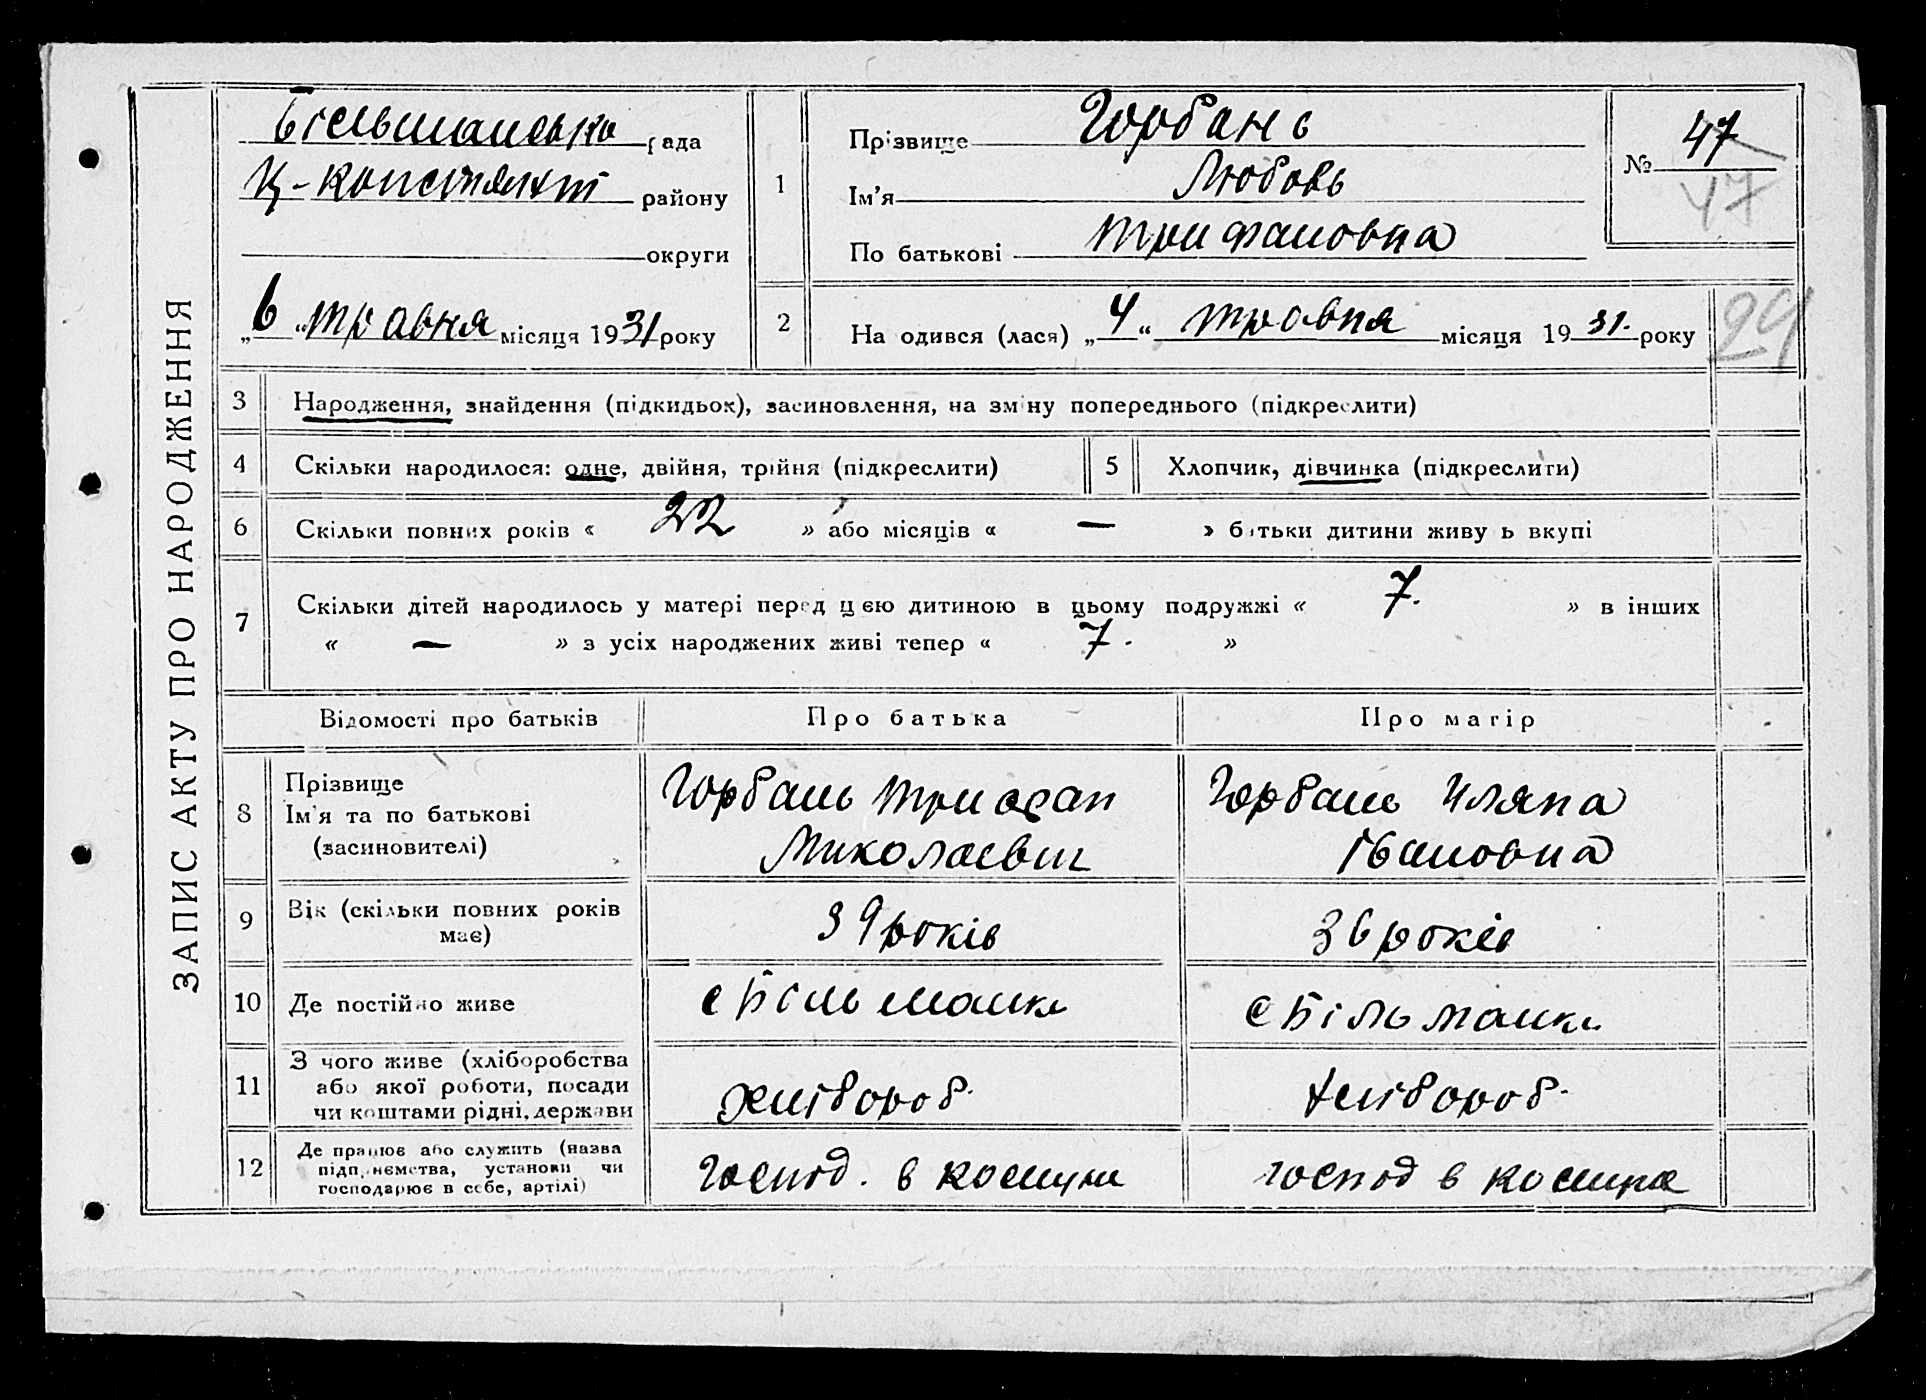 ЗАПИС АКТУ ПРО НАРОДЖЕННЯ
Більманська рада
Ц-Констянт району
округи
„6“ травня місяця 1931 року
1
Прізвище Горбань
Ім’я Любовь
По батькові Трифановна
№ 47
47
2
На одився (лася) „4“ травня місяця 1931. року
29
3 Народження, знайдення (підкидьок), засиновлення, на зміну попереднього (підкреслити)
4 Скільки народилося: одне, двійня, трійня (підкреслити)
5 Хлопчик, дівчинка (підкреслити)
6 Скільки повних років « 22 » або місяців « — » батьки дитини живуть вкупі
7 Скільки дітей народилось у матері перед цією дитиною в цьому подружжі « 7. » в інших
« — » з усіх народжених живі тепер « 7. »
Відомості про батьків Про батька Про матір
8 Прізвище
Ім’я та по батькові
(засиновителі)
Горбань Трифан
Миколаевич
Горбань Иляна
Івановна
9 Вік (скільки повних років
має)
39 років
36 років
10 Де постійно живе
с Більманка
с Більманка
11 З чого живе (хліборобства
або якої роботи, посади
чи коштами рідні, держави
хлібороб.
хлібороб.
12 Де працює або служить (назва
підприємства, установи чи
господарює в себе, артілі)
господ. в комуни
господ в комуна